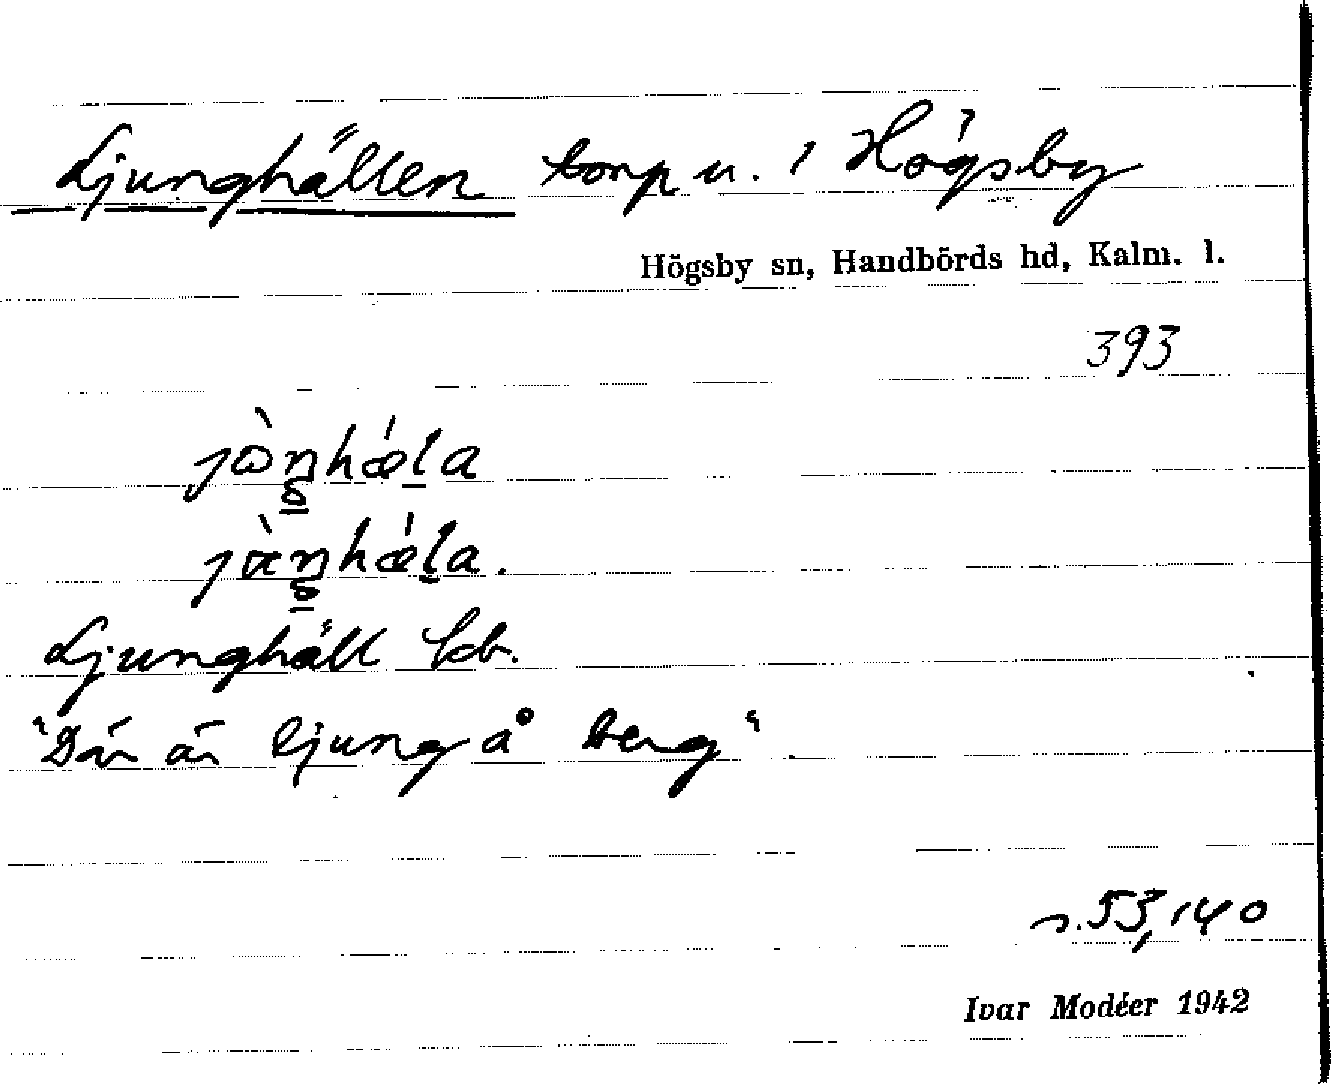 Ljunghällen torp u. 1 Högsby
Högsby sn, Handbörds hd, Kalm. l.
393
Ljunghäll kb.
"Där är ljung å berg".
s. 53, 140
Ivar Modéer 1942